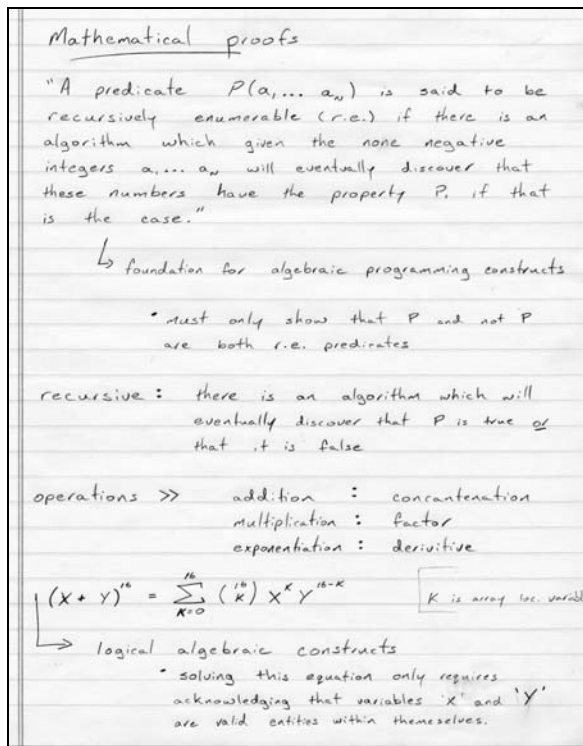 Mathematical proofs
"A predicate P(a,... aₙ) is said to be
recursively enumerable (r.e.) if there is an
algorithm which given the none negative
integers a,... aₙ will eventually discover that
these numbers have the property P, if that
is the case."
↳ foundation for algebraic programming constructs
• must only show that P and not P
are both r.e. predicates
recursive : there is an algorithm which will
eventually discover that P is true or
that it is false
operations >> addition : concantenation
multiplication : factor
exponentiation : derivitive
(X + Y)¹⁶ = ∑ₖ₌₀¹⁶ (¹⁶ₖ) Xᴷ Y¹⁶⁻ᴷ [K is array loc. variabl
↳ logical algebraic constructs
• solving this equation only requires
acknowledging that variables 'X' and 'Y'
are valid entities within themeselves.